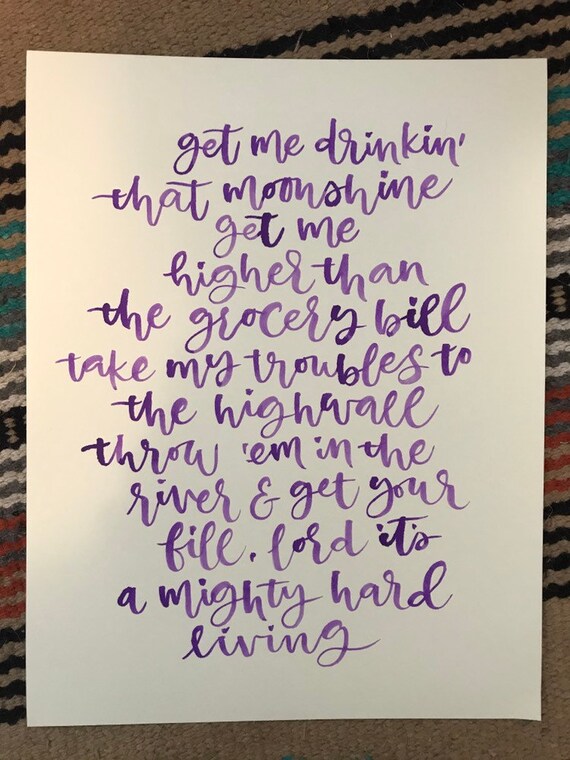 get me drinkin'
that moonshine
get me
higher than
the grocery bill
take my troubles to
the highwall
throw 'em in the
river & get your
fill. lord it's
a mighty hard
living